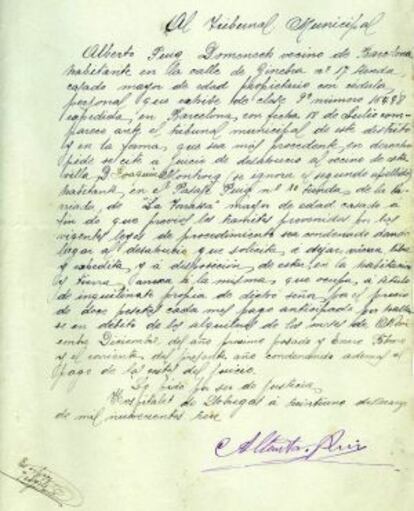 Al Tribunal Municipal
Alberto Puig Domenech vecino de Barcelona
habitante en la calle de Ginebra nº 17 tienda,
casado mayor de edad propietario con cedula
personal que exhibe de clase 9ª número
expedida, en Barcelona, con fecha 18 de Julio com-
parece ante el tribunal municipal de este distrito
y en la forma, que sea más procedente, en derecho
pide se cite a juicio de desahucio al vecino de esta
villa D. Joaquin (se ignora el segundo apellido)
habitante, en el Pasaje Puig nº 20 tienda, de la ba-
rriada, de "La Torrassa" mayor de edad casado a
fin de que previos los tramites prevenidos en las
vigentes leyes de procedimiento sea condenado dando
lugar al desahucio que solicita, a dejar, vacua libre
y expedita, y á disposición de este, en la habitacion
y tierra anexa á la misma, que ocupa, á titulo
de inquilinato propia de dicho señor por el precio
de doce pesetas cada mes pago anticipado por hallar-
se en debito de los alquileres de los meses de
Diciembre, del año proximo pasado y Enero Febrero
y el corriente del presente año condenandole ademas al
pago de las costas del juicio.
Lo pido por ser de justicia,
Hospitalet de Llobregat á veintiuno de Marzo
de mil novecientos trece
Alberto Puig